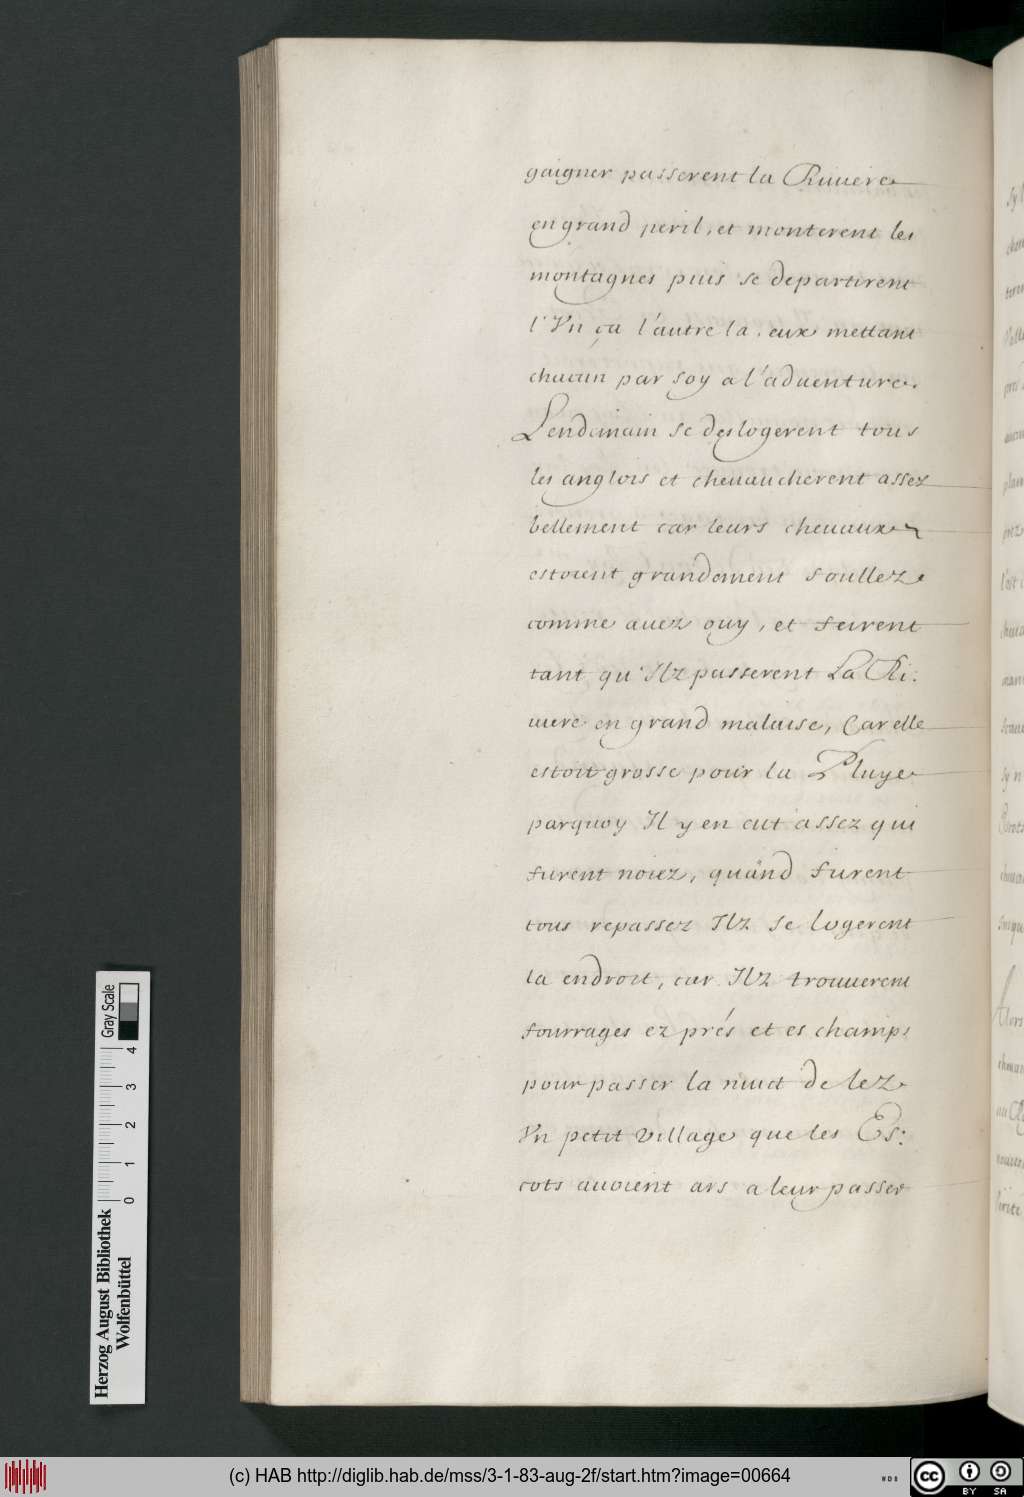 gaigner passerent la Riuiere
en grand peril, et monterent les
montagnes puis se departirent
l'Vn ça l'autre la. eux mettant
chacun par soy a l'aduenture.
Lendemain se deslogerent tous
les anglois et cheuaucherent assez
bellement car leurs cheuaux
estoient grandement foullez
comme auez ouy, et feirent
tant qu'Ilz passerent La Ri:
uiere en grand malaise, Car elle
estoit grosse pour la Pluye
parquoy Il y en eut assez qui
furent noiez, quand furent
tous repassez Ilz se logerent
la endroit, car Ilz trouuerent
fourrages ez prés et es champs
pour passer la nuict de lez
Vn petit village que les Es:
cots auoient ars a leur passer
Gray Scale
4
3
2
1
0
Herzog August Bibliothek
Wolfenbüttel
(c) HAB http://diglib.hab.de/mss/3-1-83-aug-2f/start.htm?image=00664
cc
BY SA